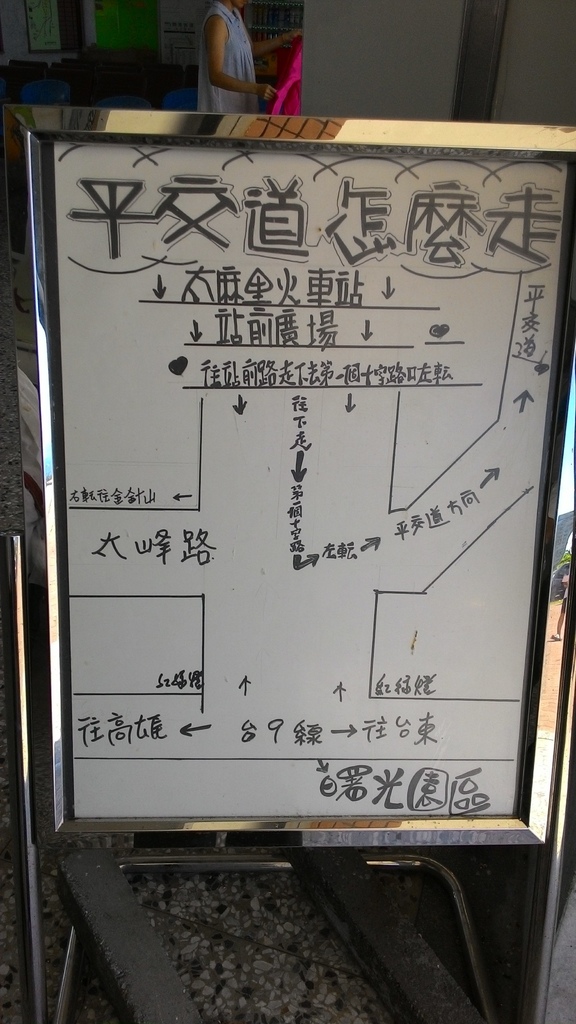 平交道怎麼走
↓ 太麻里火車站 ↓
↓ 站前廣場 ↓
往站前路走下去第一個十字路口左転
平交道
往下走
第一個十字路
右転往金針山 ←
太峰路
左転
平交道方向
紅綠燈
紅綠燈
往高雄 ← 台9線 → 往台東
曙光園區